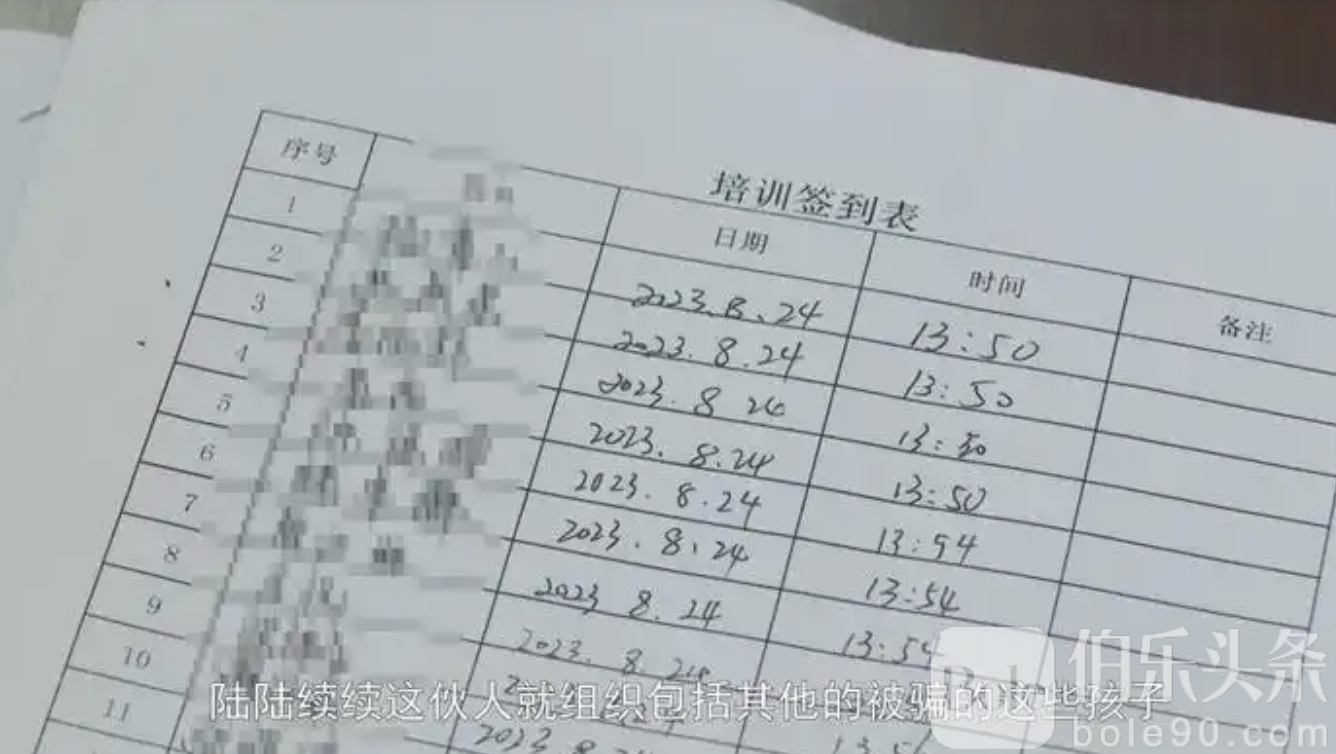 培训签到表
序号 日期 时间 备注
1 2023.8.24 13:50
2 2023.8.24 13:50
3 2023.8 24 13:50
4 2023.8.24 13:50
5 2023.8.24 13:54
6 2023.8.24 13:54
7 2023 8.24 13:54
8 2023.8.24
9
10
11
陆陆续续这伙人就组织包括其他的被骗的这些孩子
伯乐头条
bole90.com